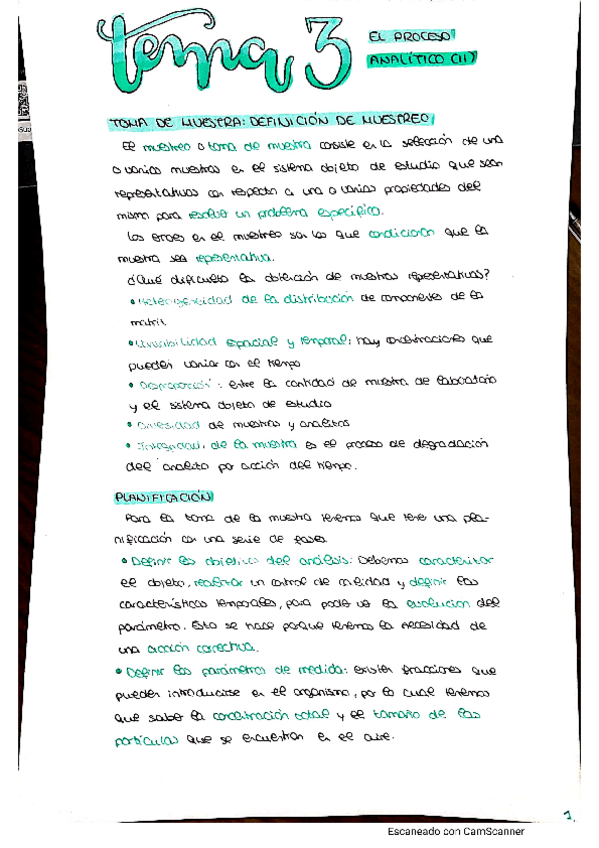 tema 3
EL PROCESO
ANALÍTICO (II)
TOMA DE MUESTRA: DEFINICIÓN DE MUESTREO
El muestreo o toma de muestra consiste en la selección de una
o varias muestras en el sistema objeto de estudio que sean
representativas con respecto a una o varias propiedades del
mismo para resolver un problema específico.
Los errores en el muestreo son los que condicionan que la
muestra sea representativa.
¿Qué dificulta la obtención de muestras representativas?
• Heterogeneidad de la distribución de componentes de la
matriz.
• Variabilidad espacial y temporal: hay concentraciones que
pueden variar con el tiempo
• Desproporción: entre la cantidad de muestra de laboratorio
y el sistema objeto de estudio
• Diversidad de muestras y analitos
• Integridad de la muestra es el proceso de degradación
del analito por acción del tiempo.
PLANIFICACIÓN
Para la toma de la muestra tenemos que tener una pla-
nificación con una serie de fases
• Definir los objetivos del análisis: Debemos caracterizar
el objeto, realizar un control de calidad y definir las
características temporales, para poder ver la evolución del
parámetro. Esto se hace porque tenemos la necesidad de
una acción correctiva.
• Definir los parámetros de medida: existen fracciones que
pueden introducirse en el organismo, por lo cual tenemos
que saber la concentración total y el tamaño de las
partículas que se encuentran en el aire.
1
Escaneado con CamScanner